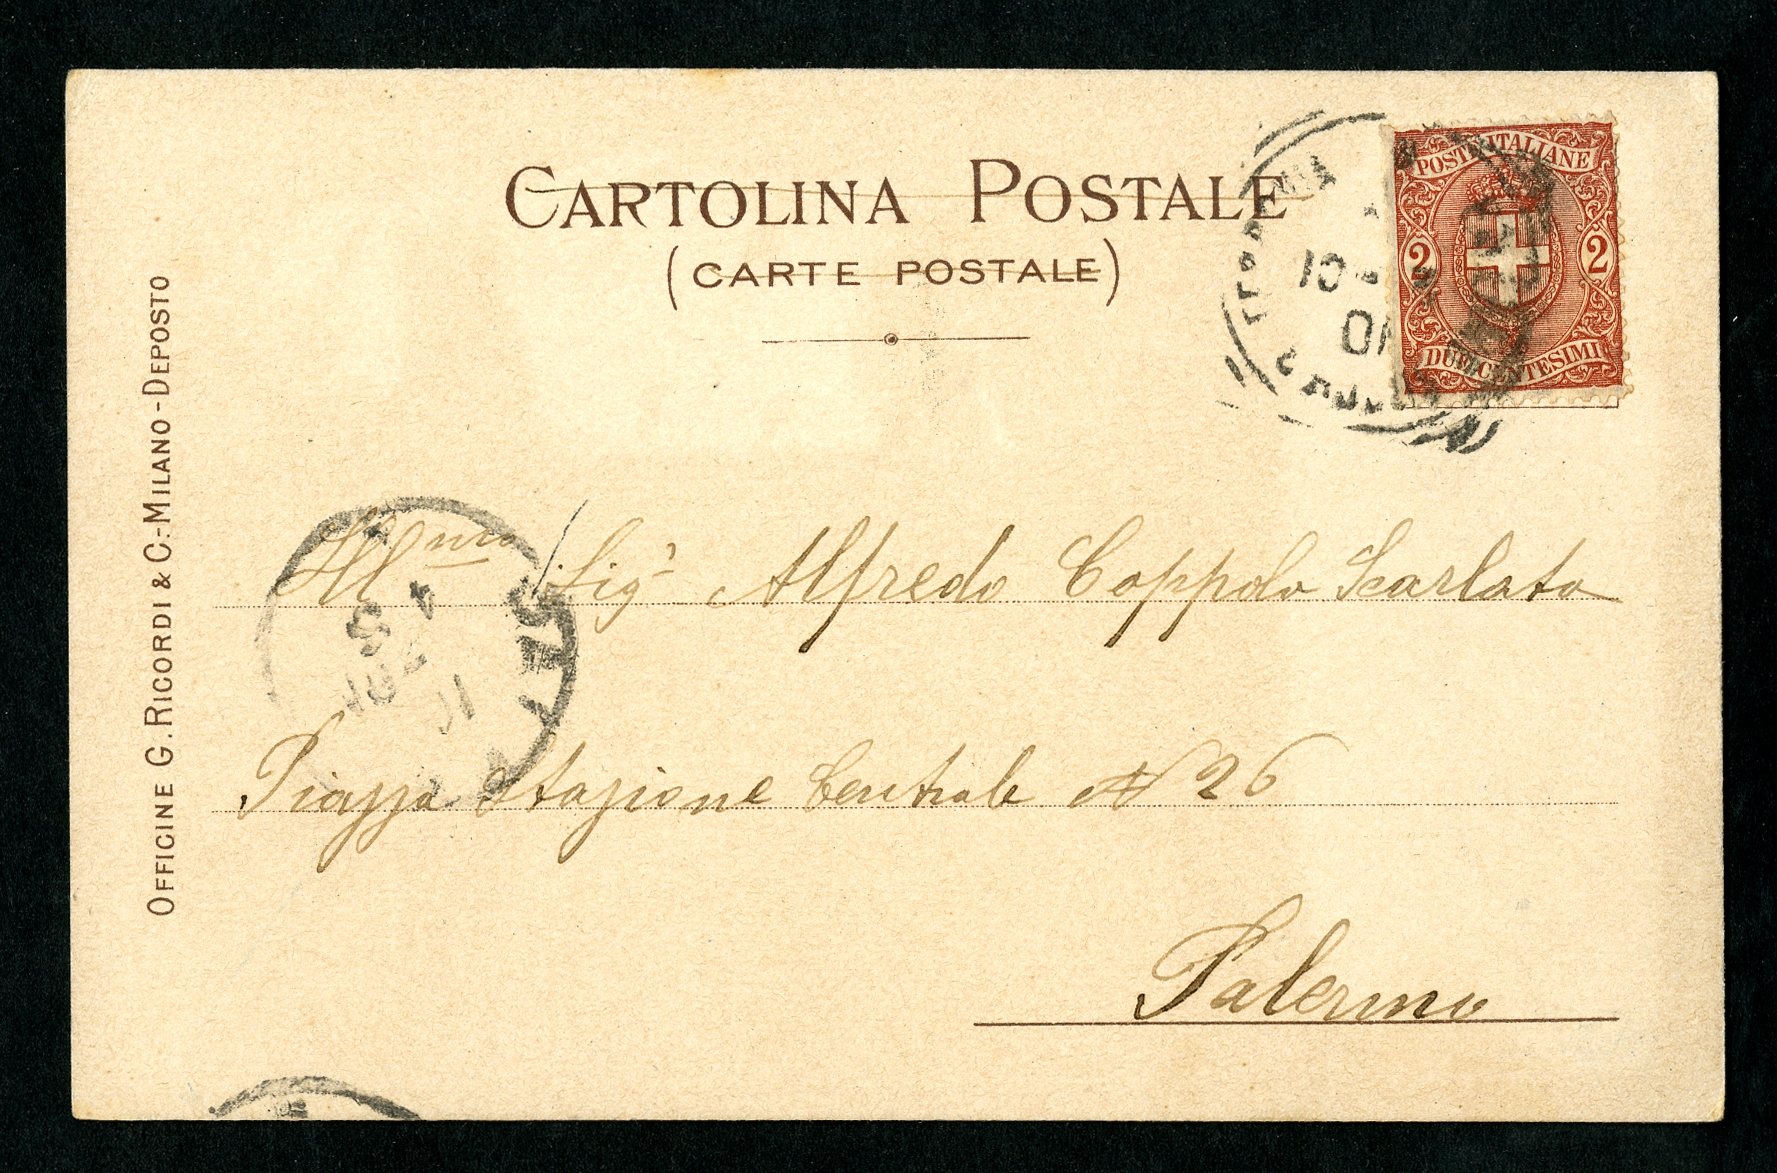 CARTOLINA POSTALE
(CARTE POSTALE)
POSTE ITALIANE
2 2
DUE CENTESIMI
OFFICINE G. RICORDI & C.-MILANO-DEPOSTO
Ill.mo Sigr Alfredo Coppola Scarlata
Piazza Stazione Centrale N 26
Palermo